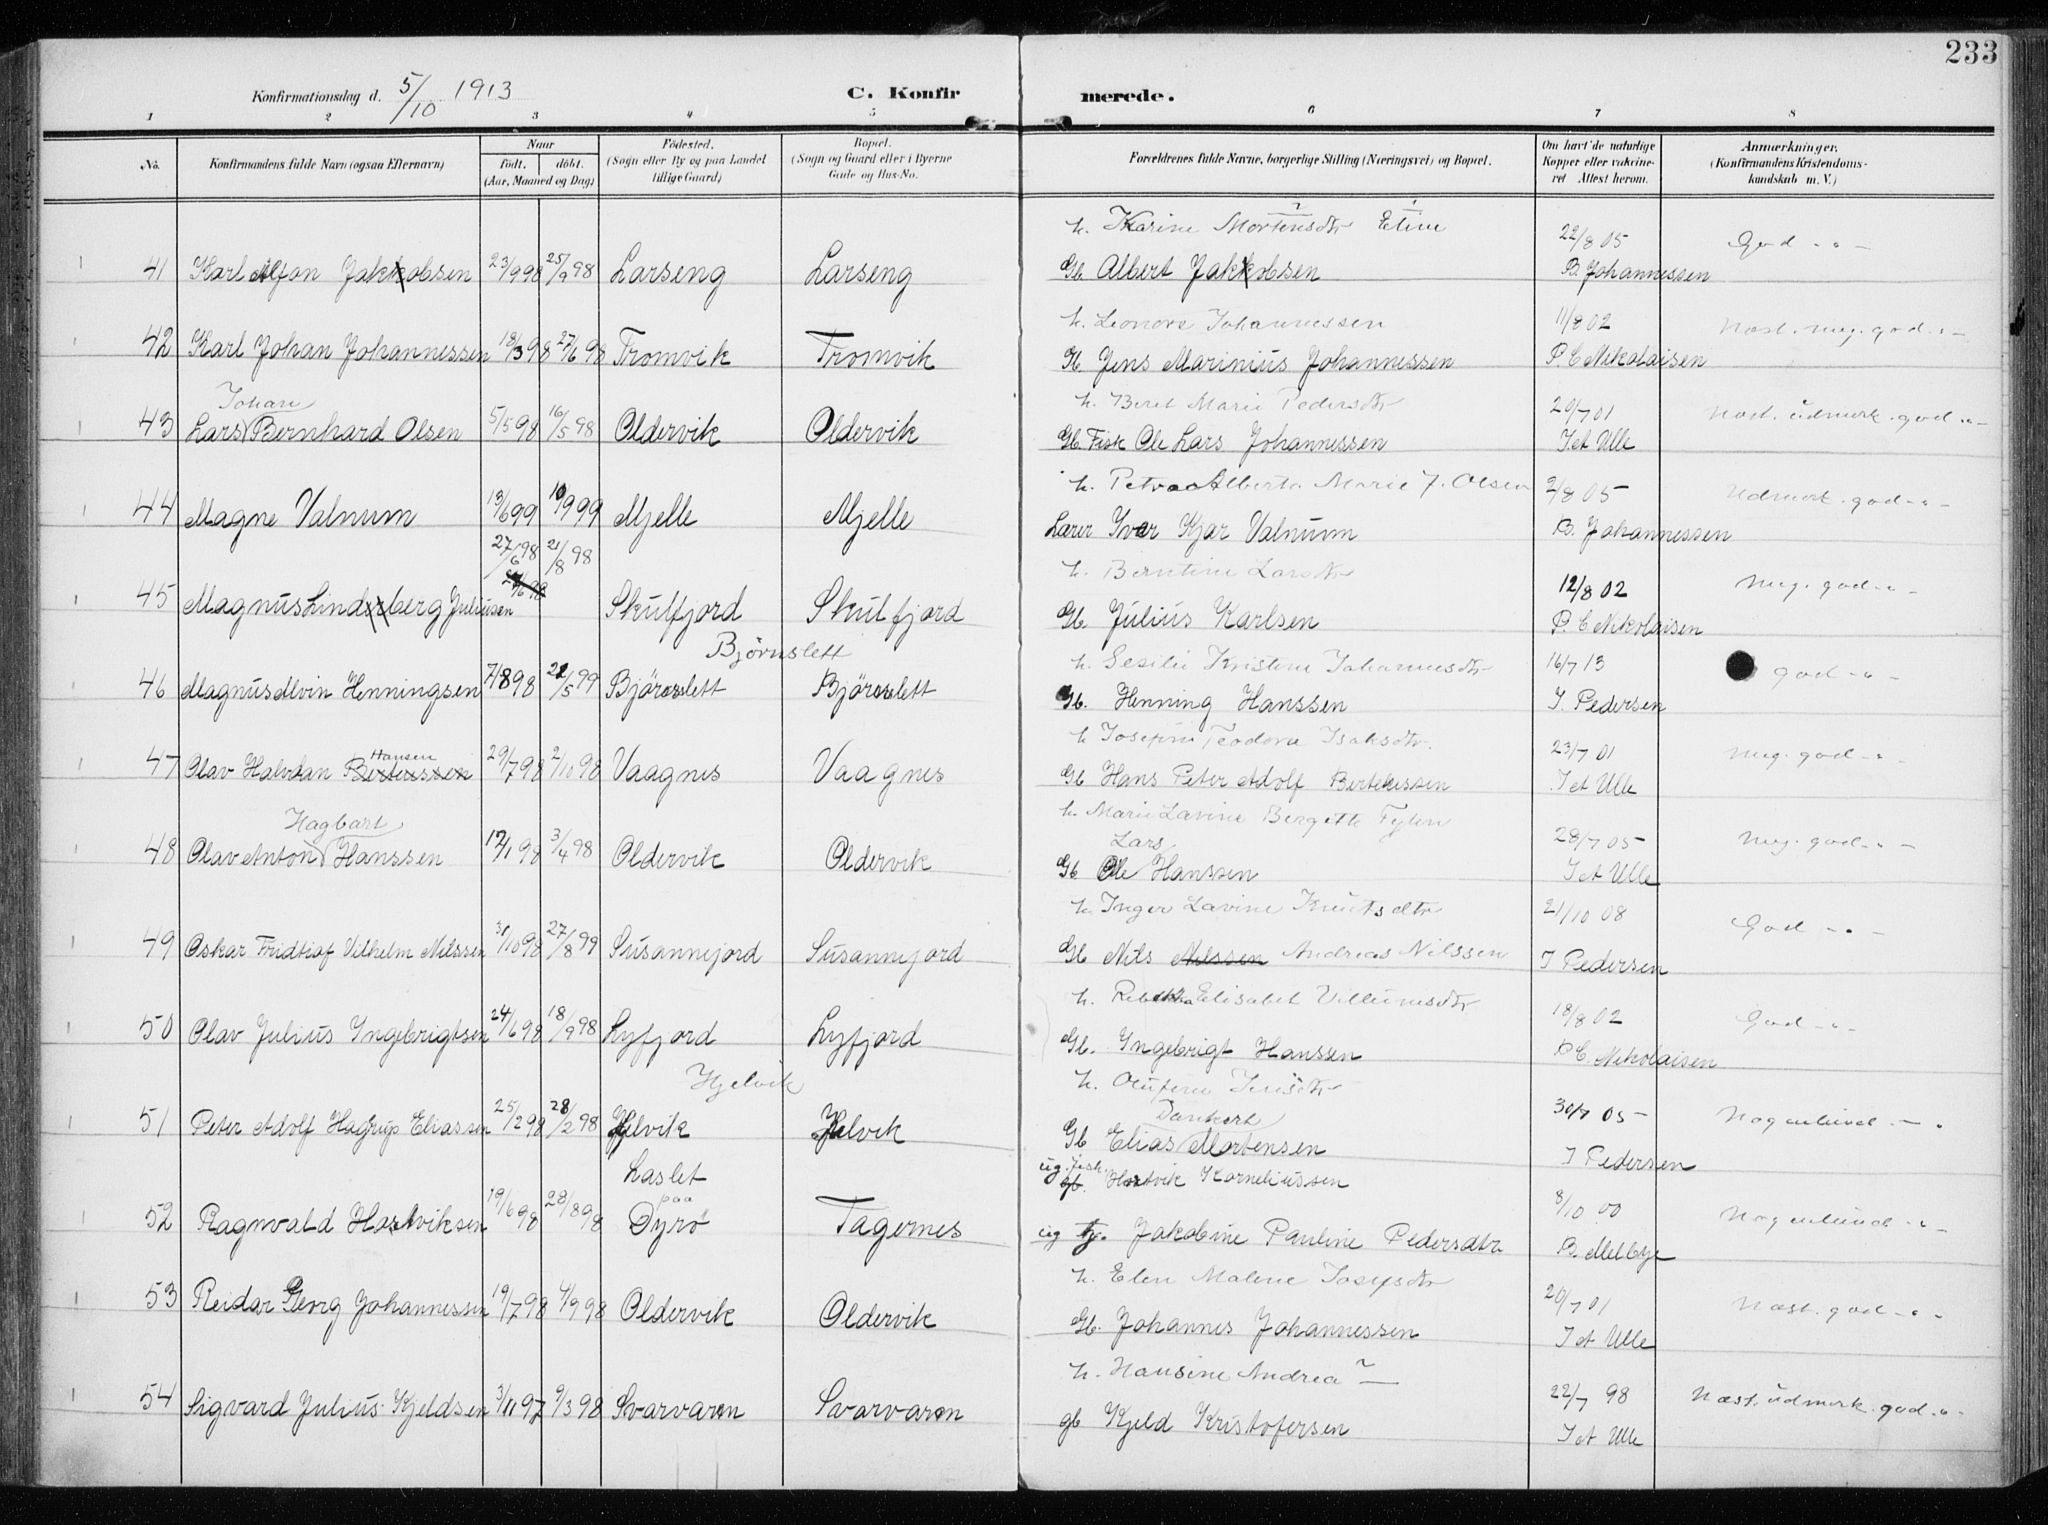 233
Konfirmationsdag d. 5/10 1913 C. Konfir merede.
1 2 3 4 5 6 7 8
No. Konfirmandens fulde Navn (ogsaa Efternavn) Naar født. døbt. (Aar, Maaned og Dag) Födested. (Sogn eller By og paa Landet tillige Gaard) Bopæl. (Sogn og Gaard eller i Byerne Gade og Hus-No. Forældrenes fulde Navne, borgerlige Stilling (Næringsvei) og Bopæl. Om havt de naturlige Kopper eller vakcineret Attest herom. Anmærkninger. (Konfirmandens Kristendomskundskab m. V.)
h. Karine Mortensdtr Eline 22/8 05 God -"-
41 Karl Alfon Jakobsen 23/9 98 25/9 98 Larseng Larseng Gb. Albert Jakobsen B. Johannessen
h. Leonore Johannessen 11/8 02 Næst. meg. god -"-
42 Karl Johan Johannessen 18/3 98 27/6 98 Tromvik Tromvik Gb Jens Marinius Johannessen P. C Nikolaisen
Johan h. Beret Marie Pedersdtr 20/7 01 Næst. udmerk. god -"-
43 Lars Bernhard Olsen 5/5 98 16/5 98 Oldervik Oldervik Gb. Fisk Ole Lars Johannessen I. A Ulle
h. Petra Alberta Marie J. Olsen 2/8 05 Udmerk. god -"-
44 Magne Valnum 13/6 99 10/9 99 Mjelle Mjelle Lærer Iver Kjær Valnum B. Johannessen
27/6 98 21/8 98 h. Berntine Larsdtr 12/8 02 Meg. god -"-
45 Magnus Lindberg Juliusen Skulfjord Skulfjord Gb. Julius Karlsen P. C Nikolaisen
Björnslett h. Sesilie Kristine Johannesdtr 16/7 13 god -"-
46 Magnus Alvin Henningsen 7/8 98 21/5 99 Björnslett Björnslett Gb. Henning Hanssen I. Pedersen
Hansen h Josefine Teodora Isaksdtr. 23/7 01 Meg. god -"-
47 Olav Halvdan Berteussen 29/7 98 2/10 98 Vaagnes Vaagnes Gb Hans Peter Adolf Berteussen I A Ulle
Hagbart h. Marie Lavine Bergitte 28/7 05 Meg. god -"-
Lars
48 Olav Anton Hanssen 17/1 98 3/4 98 Oldervik Oldervik Gb Ole Hanssen I A Ulle
h. Inger Lavine Knutsdtr 21/10 08 God -"-
49 Oskar Fridtiof Vilhelm Nilssen 31/10 98 27/8 99 Susannejord Susannejord Gb Nils Nilssen Andreas Nilssen I Pedersen
h. Rebekka Elisabet Villumsdtr 18/8 02 God -"-
50 Olav Julius Ingebrigtsen 24/6 98 18/9 98 Lyfjord Lyfjord Gb. Ingebrigt Hanssen P C. Nikolaisen
Hjelvik h. Olufine Jensdtr
Dankert 30/7 05 Nogenlund -"-
51 Peter Adolf Hagrup Eliassen 25/2 98 28/2 98 Hjelvik Hjelvik Gb Elias Mortensen I Pedersen
Laslet ug. fisk. gb. Hartvik Korneliussen
paa
52 Ragnvald Hartviksen 19/6 98 28/8 98 Dyrö Tagernes ug tj. Jakobine Pauline Pedersdtr 8/10 00 B. Melbye Nogenlund -"-
h. Elen Malene Josepsdtr 20/7 01 Næst. god -"-
53 Reidar Georg Johannessen 19/7 98 4/9 98 Oldervik Oldervik Gb. Johannes Johannessen I A Ulle
h. Hansine Andrea ? —
54 Sigvard Julius Kjeldsen 3/11 97 9/3 98 Svarvaren Svarvaren gb Kjeld Kristofersen 22/7 98 I A Ulle Næst. udmerk. god -"-